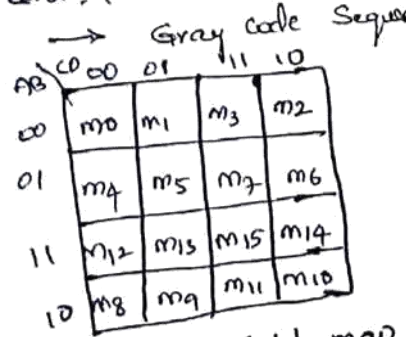 → Gray code
AB CD 00 01 11 10
00 m0 m1 m3 m2
01 m4 m5 m7 m6
11 m12 m13 m15 m14
10 m8 m9 m11 m10
map